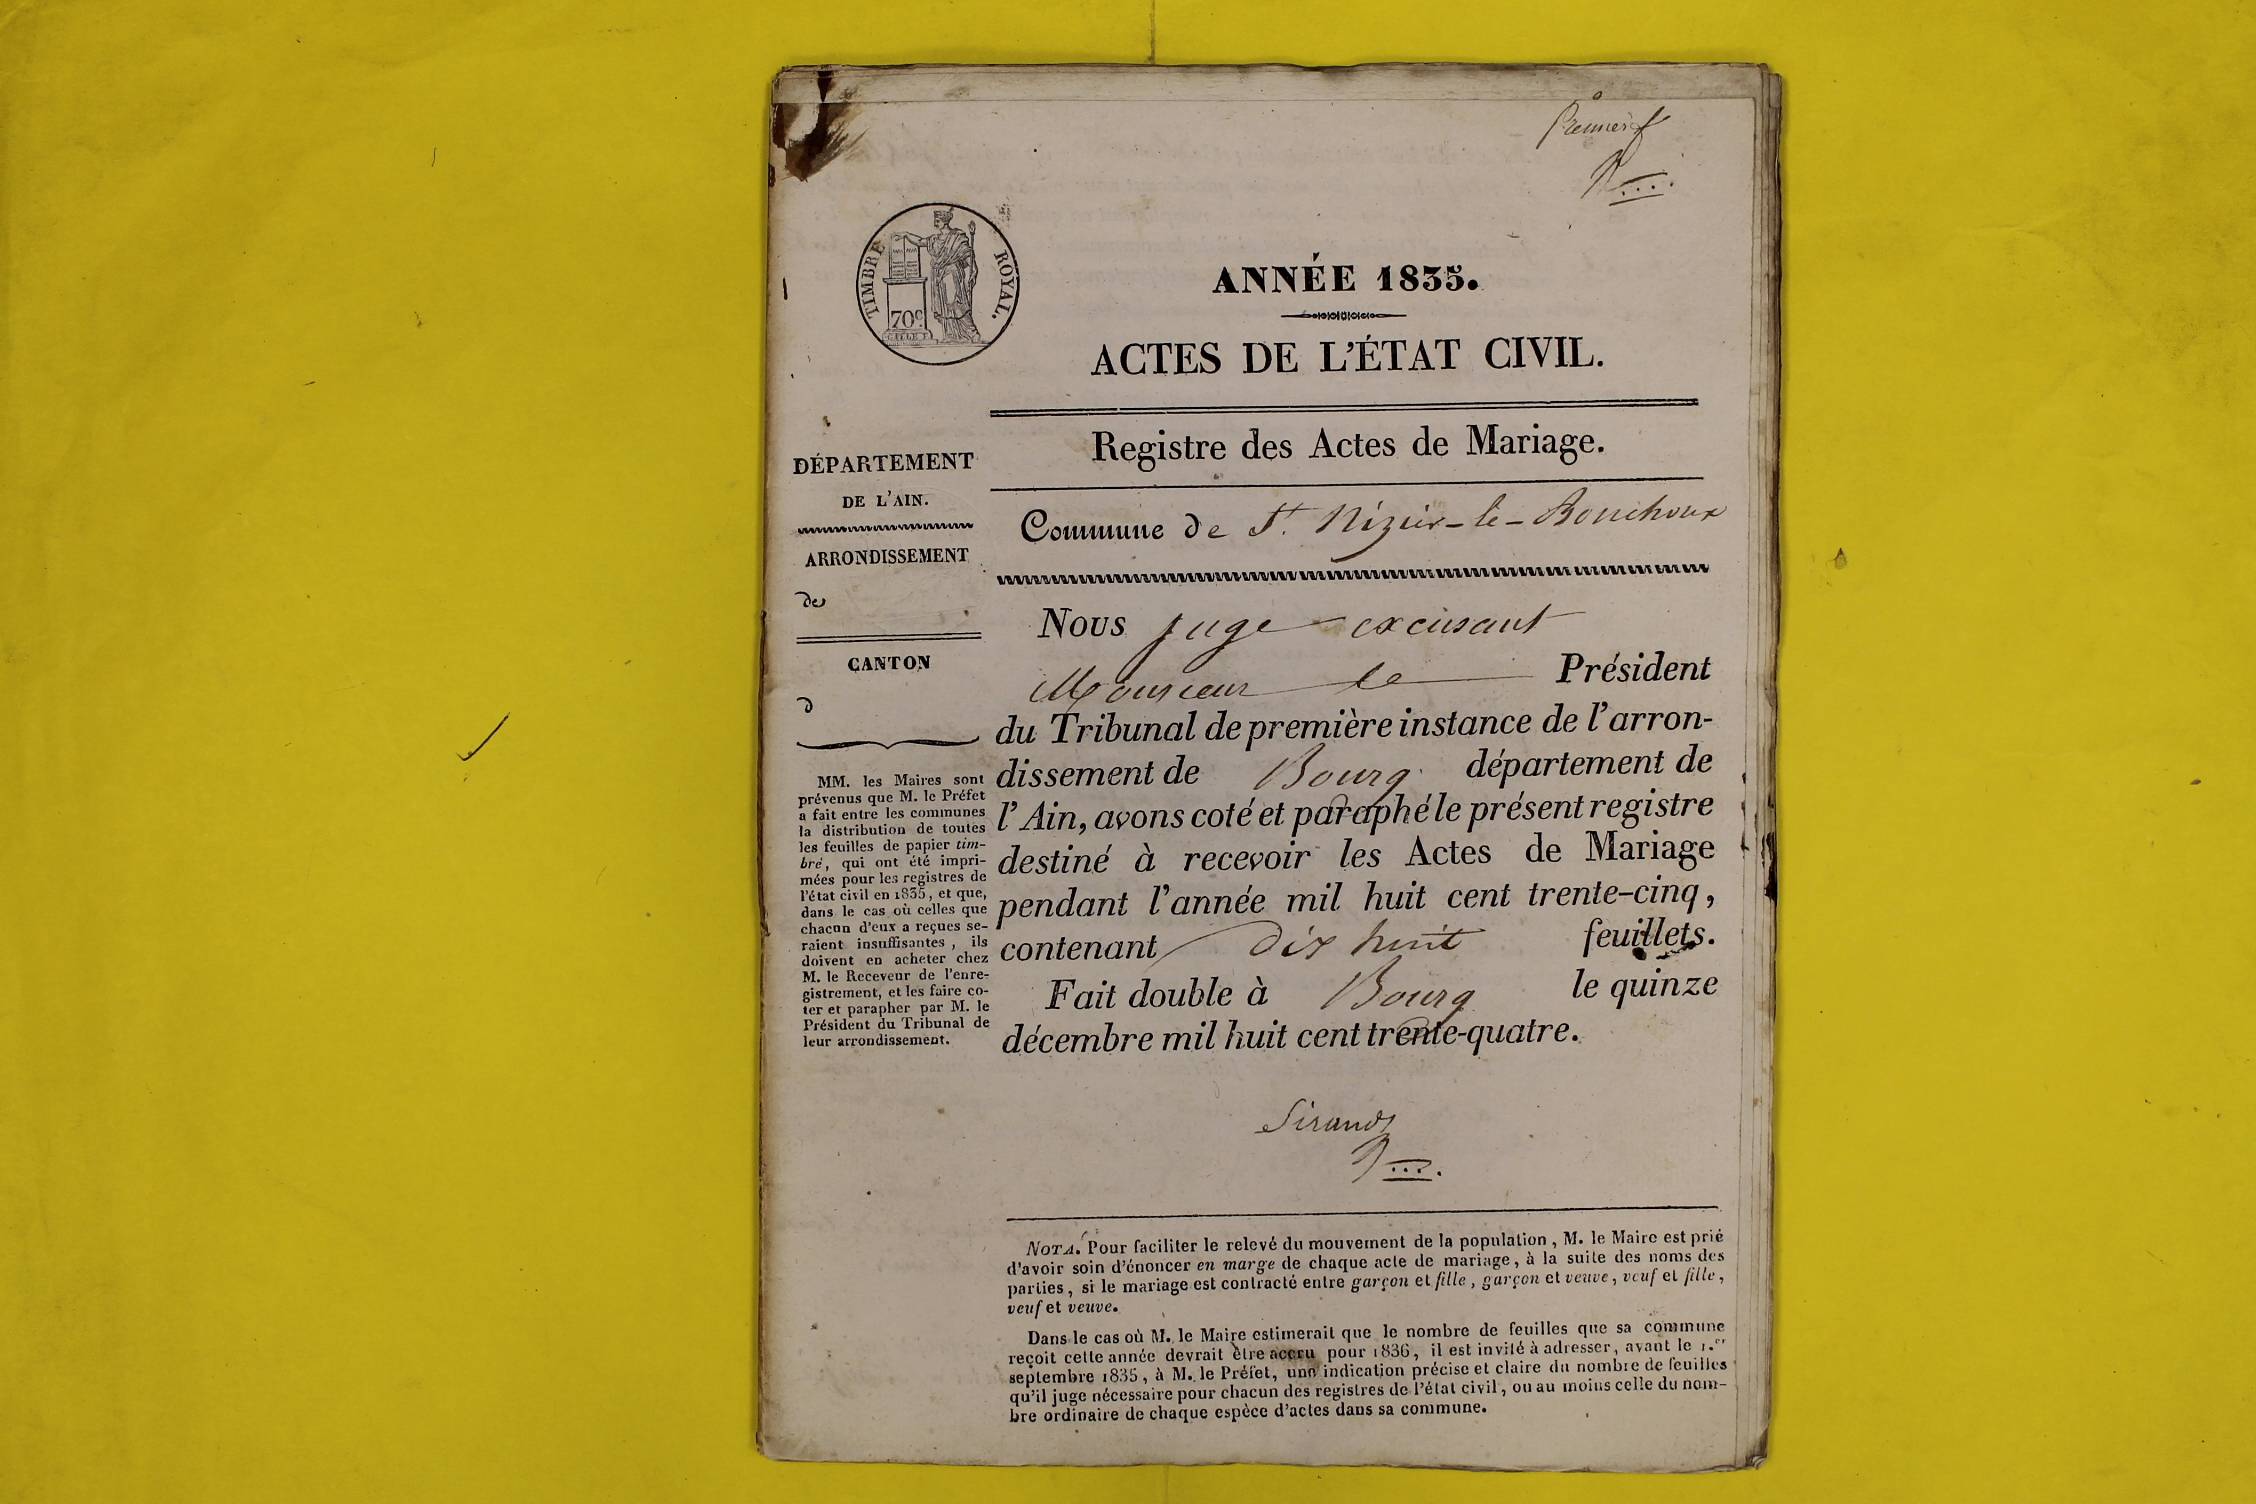 Premier f
TIMBRE ROYAL.
70c
ANNÉE 1835.
ACTES DE L'ÉTAT CIVIL.
Registre des Actes de Mariage.
Commune de St. Nizier-le-Bouchoux
DÉPARTEMENT
DE L'AIN.
ARRONDISSEMENT
de
CANTON
d
MM. les Maires sont
prévenus que M. le Préfet
a fait entre les communes
la distribution de toutes
les feuilles de papier tim-
bré, qui ont été impri-
mées pour les registres de
l'état civil en 1835, et que,
dans le cas où celles que
chacun d'eux a reçues se-
raient insuffisantes, ils
doivent en acheter chez
M. le Receveur de l'enre-
gistrement, et les faire co-
ter et parapher par M. le
Président du Tribunal de
leur arrondissement.
Nous juge excusant
Monsieur le Président
du Tribunal de première instance de l'arron-
dissement de Bourg département de
l'Ain, avons coté et paraphé le présent registre
destiné à recevoir les Actes de Mariage
pendant l'année mil huit cent trente-cinq,
contenant dix huit feuillets.
Fait double à Bourg le quinze
décembre mil huit cent trente-quatre.
Sirand
NOTA. Pour faciliter le relevé du mouvement de la population, M. le Maire est prié
d'avoir soin d'énoncer en marge de chaque acte de mariage, à la suite des noms des
parties, si le mariage est contracté entre garçon et fille, garçon et veuve, veuf et fille,
veuf et veuve.
Dans le cas où M. le Maire estimerait que le nombre de feuilles que sa commune
reçoit cette année devrait être accru pour 1836, il est invité à adresser, avant le 1.er
septembre 1835, à M. le Préfet, une indication précise et claire du nombre de feuilles
qu'il juge nécessaire pour chacun des registres de l'état civil, ou au moins celle du nom-
bre ordinaire de chaque espèce d'actes dans sa commune.